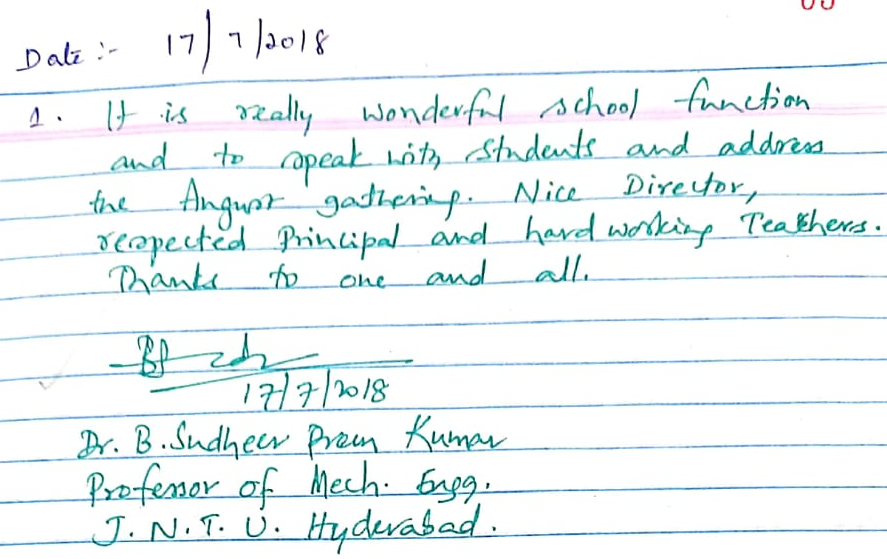 Date :- 17/7/2018
1. It is really wonderful school function
and to speak with students and address
the August gathering. Nice Director,
respected Principal and hard working Teachers.
Thanks to one and all.
17/7/2018
Dr. B. Sudheer Prem Kumar
Professor of Mech. Engg.
J. N. T. U. Hyderabad.